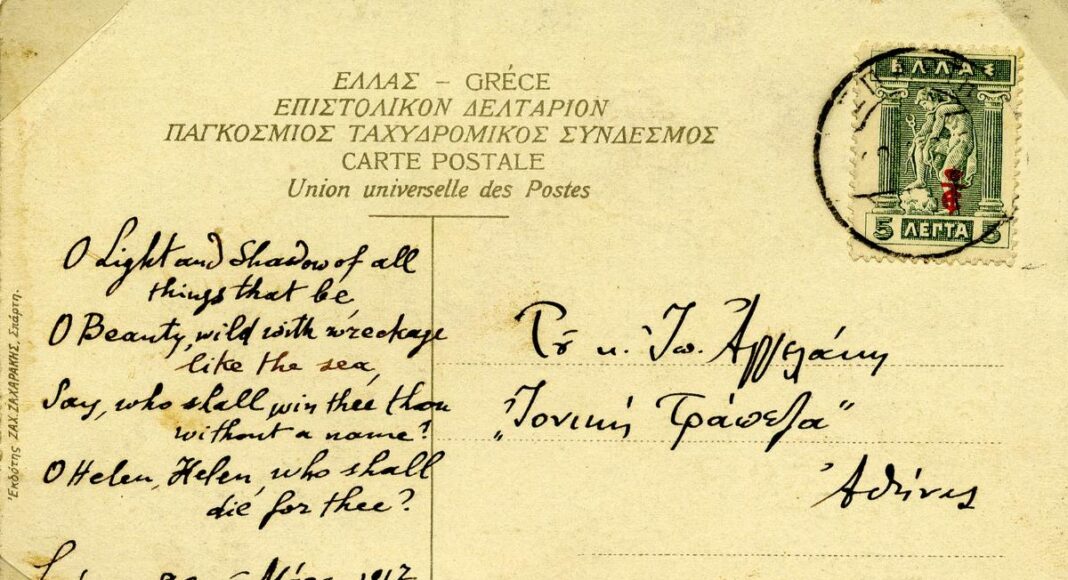 ΕΛΛΑΣ – GRÉCE
ΕΠΙΣΤΟΛΙΚΟΝ ΔΕΛΤΑΡΙΟΝ
ΠΑΓΚΟΣΜΙΟΣ ΤΑΧΥΔΡΟΜΙΚΟΣ ΣΥΝΔΕΣΜΟΣ
CARTE POSTALE
Union universelle des Postes
ΕΛΛΑΣ
5 ΛΕΠΤΑ 5
O Light and Shadow of all
things that be
O Beauty, wild with wreckage
like the sea,
Say, who shall win thee thou
without a name?
O Helen, Helen, who shall
die for thee?
κ. Ἰω. Ἀγγελάκη
„Ἰονικὴ Τράπεζα"
Ἀθήνας
Ἐκδότης ΖΑΧ. ΖΑΧΑΡΑΚΗΣ, Σπάρτη.